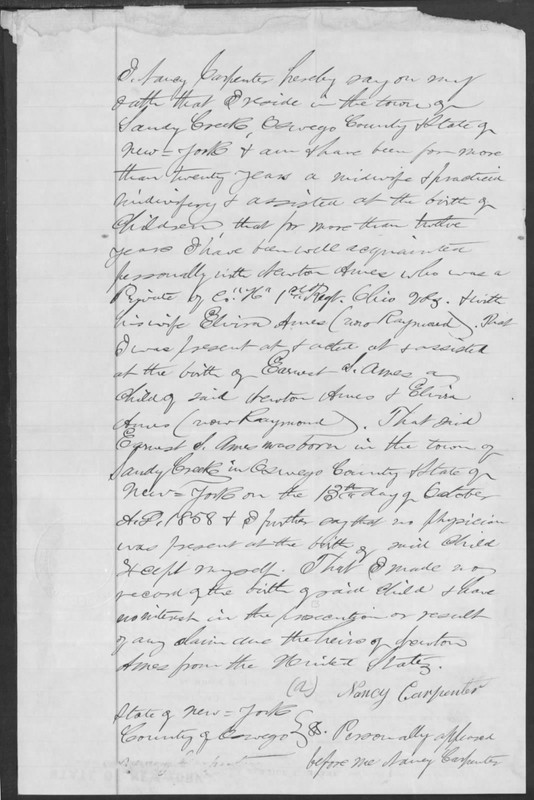 I, Nancy Carpenter hereby say on my
oath that I reside in the town of
Sandy Creek, Oswego County & State of
New=York & am & have been for more
than twenty years a midwife & practiced
midwifery & assisted at the birth of
Children that for more than twelve
years I have been well acquainted
personally with Newton Ames who was a
Private of Co. "K" 1st Regt. Ohio Vols. & with
his wife Elvira Ames (now Raymond). That
I was present at & acted at & assisted
at the birth of Earnest S. Ames a
Child of said Newton Ames & Elvira
Ames (now Raymond). That said
Earnest S. Ames was born in the town of
Sandy Creek in Oswego County & State of
New=York on the 13th day of October
A.D. 1858 & I further say that no physician
was present at the birth of said Child
except myself. That I made no
record of the birth of said Child & have
no interest in the prosecution or result
of any claim due the heirs of Newton
Ames from the United States.
Nancy Carpenter
State of New=York
County of Oswego } ss. Personally appeared
before me Nancy Carpenter